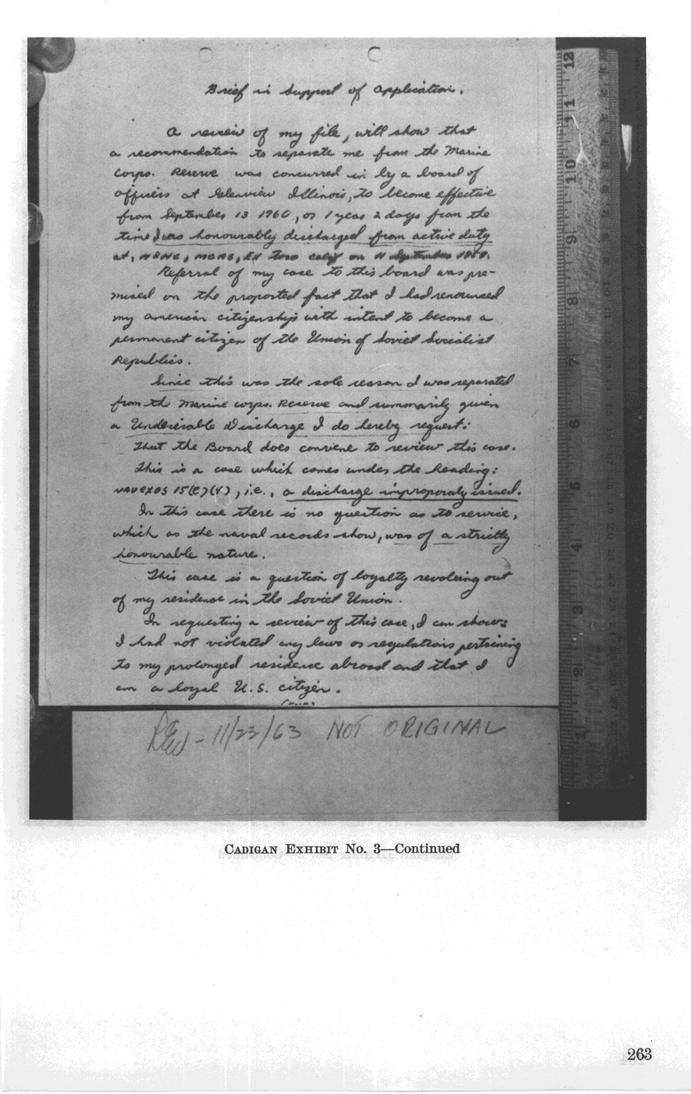 Brief in Support of Application.
A review of my file, will show that
a recommendation to separate me from the Marine
Corps. Reserve was concurred in by a board of
officers at Glenview Illinois, to become effective
from September 13 1960, or 1 year 2 days from the
time I was honourably discharged from active duty
at, MCAS, El Toro Calif on 11 September 1959.
Referral of my case to this board was pre-
mised on the proported fact that I had renounced
my american citizenship with intent to become a
permanent citizen of the Union of Soviet Socialist
Republics.
Since this was the sole reason I was separated
from the Marine corps. Reserve and summarily given
a Undesirable discharge I do hereby request:
That the Board does convene to review this case.
This is a case which comes under the heading:
NAVEXOS 15(E)(4), i.e., a discharge improporaly issued.
In this case there is no question as to service,
which as the naval records show, was of a strictly
honourable nature.
This case is a question of loyalty revolving out
of my residence in the Soviet Union.
In requesting a review of this case, I can show:
I had not violated any laws or regulations pertaining
to my prolonged residence abroad and that I
am a loyal U.S. citizen.
11/23/63 NOT ORIGINAL
12
11
10
9
8
7
6
5
4
3
2
1
CADIGAN EXHIBIT NO. 3—Continued
263